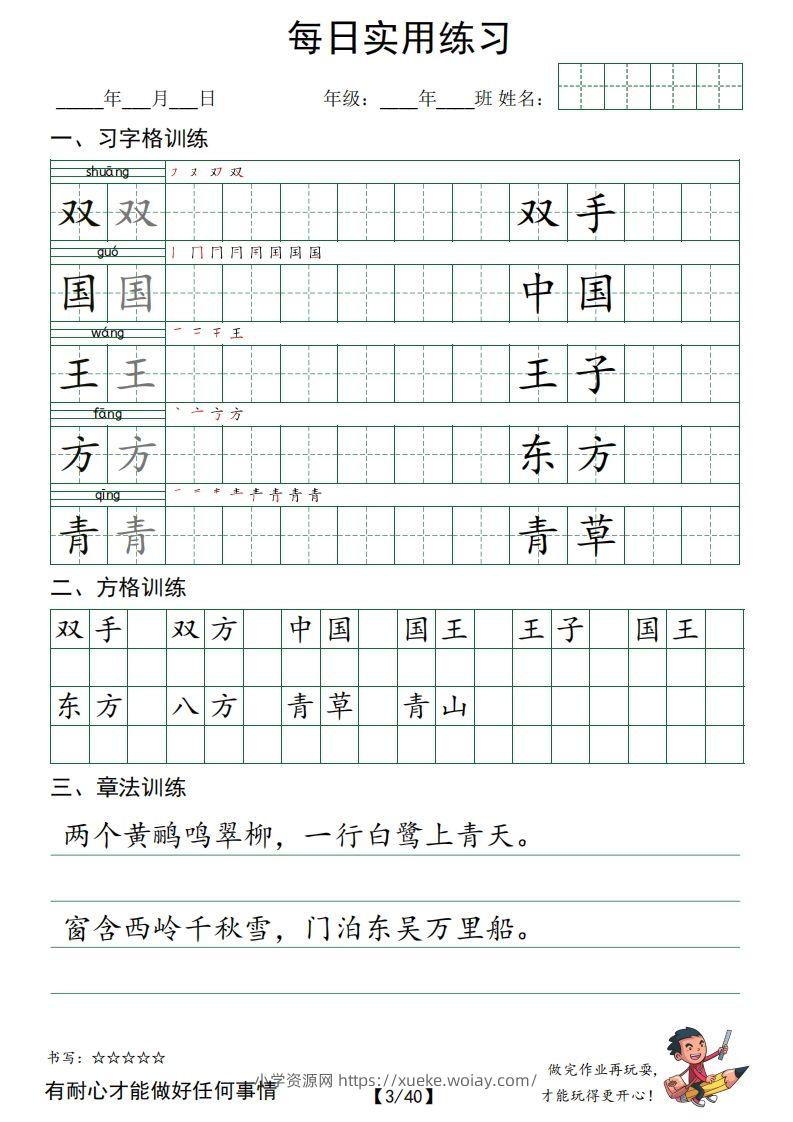 每日实用练习
_____年___月___日 年级：____年____班 姓名：
一、习字格训练
shuāng
双 双 双 手
guó
国 国 中 国
wáng
王 王 王 子
fāng
方 方 东 方
qīng
青 青 青 草
二、方格训练
双 手 双 方 中 国 国 王 王 子 国 王
东 方 八 方 青 草 青 山
三、章法训练
两个黄鹂鸣翠柳，一行白鹭上青天。
窗含西岭千秋雪，门泊东吴万里船。
书写：☆☆☆☆☆
做完作业再玩耍，
有耐心才能做好任何事情 小学资源网 https://xueke.woiay.com/ 【3/40】 才能玩得更开心！